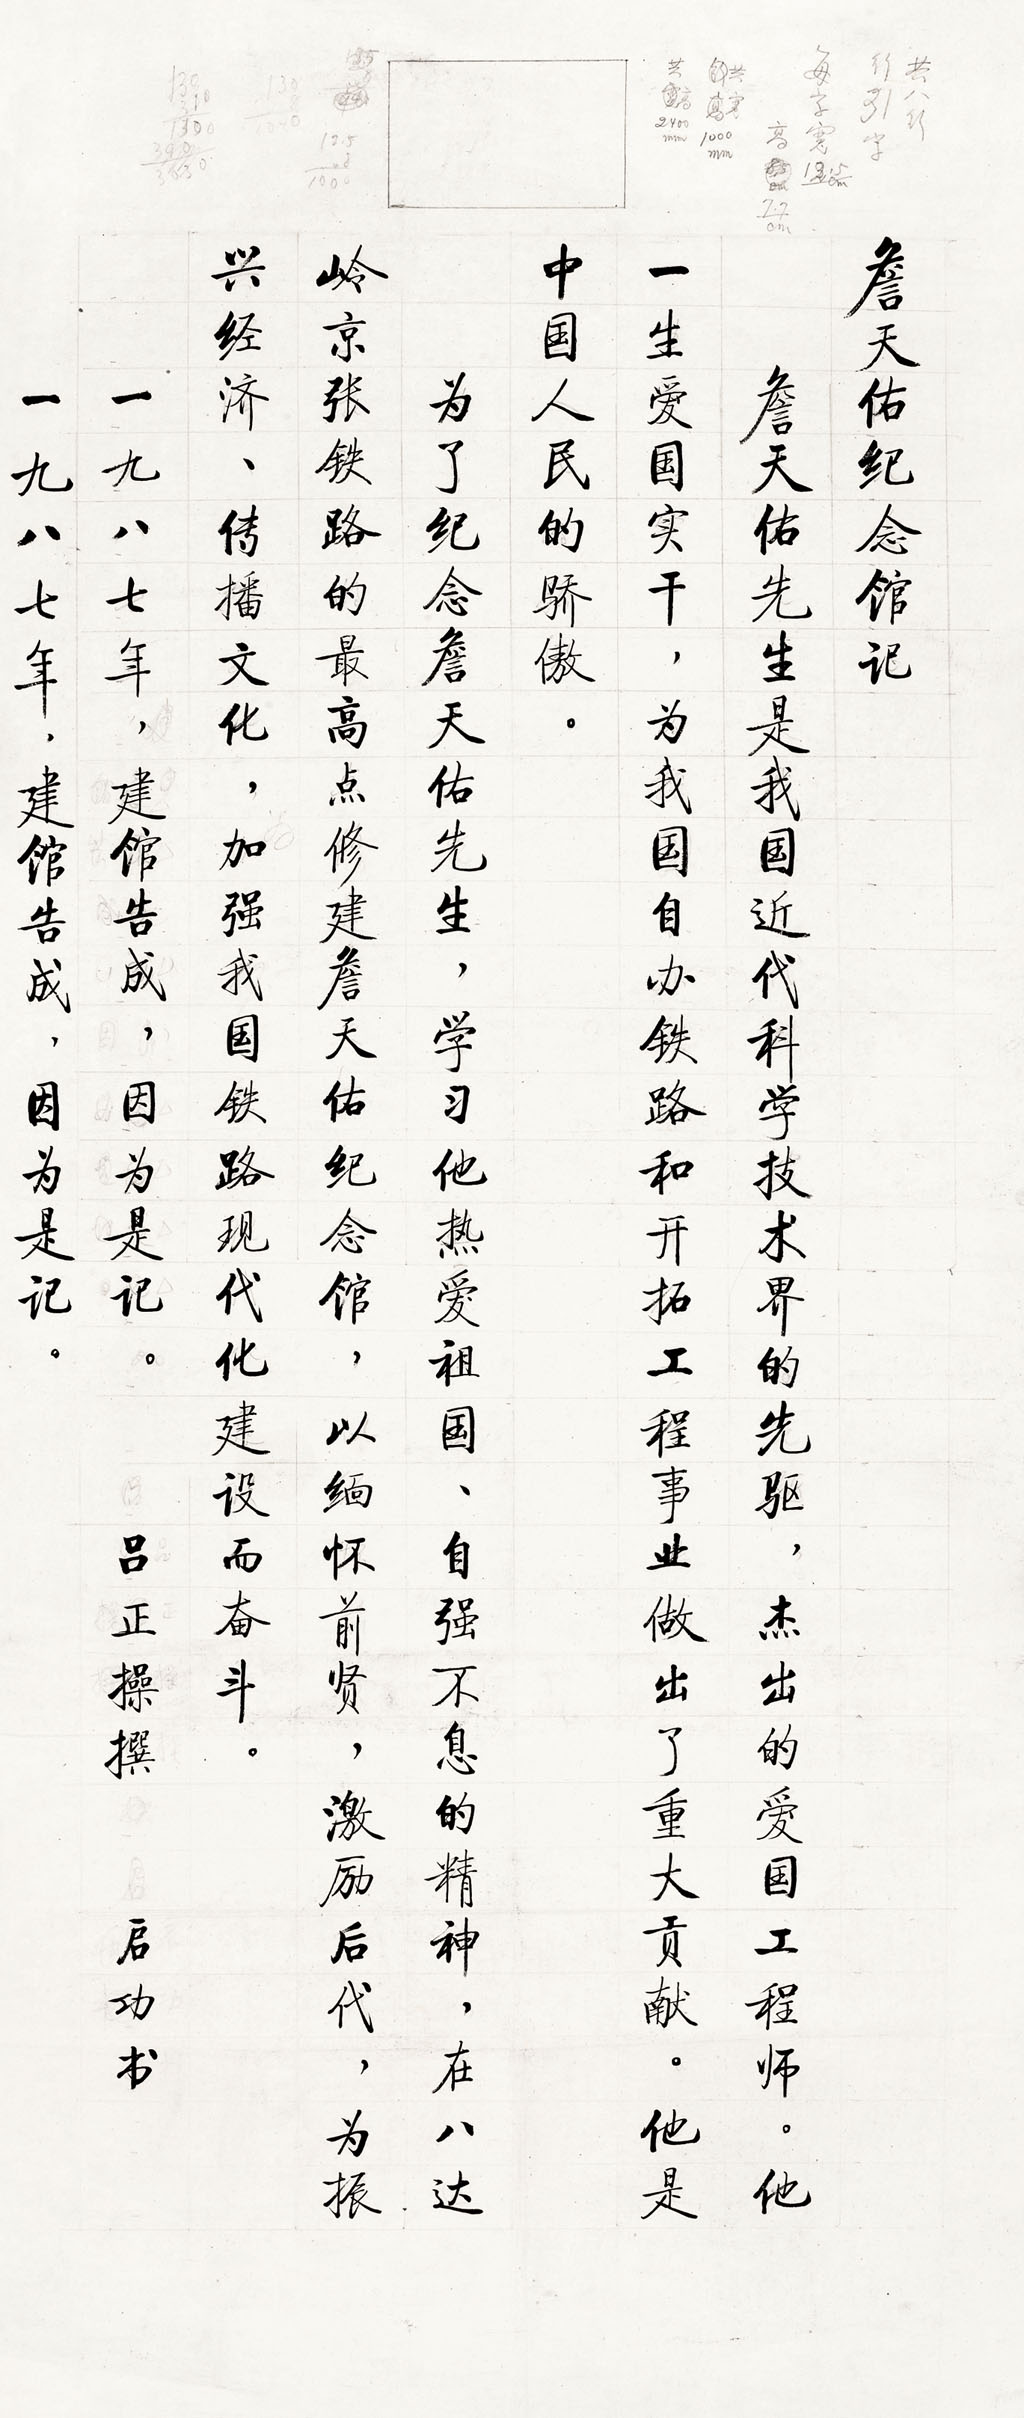 共八行
行31字
每字宽
高
7.7
cm
共宽
1000
mm
共高
2400
mm
詹天佑纪念馆记
詹天佑先生是我国近代科学技术界的先驱，杰出的爱国工程师。他
一生爱国实干，为我国自办铁路和开拓工程事业做出了重大贡献。他是
中国人民的骄傲。
为了纪念詹天佑先生，学习他热爱祖国、自强不息的精神，在八达
岭京张铁路的最高点修建詹天佑纪念馆，以缅怀前贤，激励后代，为振
兴经济、传播文化，加强我国铁路现代化建设而奋斗。
一九八七年，建馆告成，因为是记。 吕正操撰 启功书
一九八七年，建馆告成，因为是记。